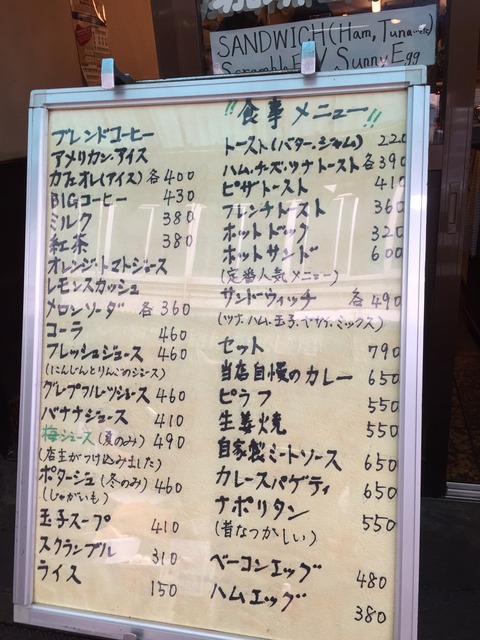 SANDWICH (Ham, Tuna
Scrambl
Sunny Egg
ブレンドコーヒー
アメリカン・アイス
カフェオレ(アイス) 各400
BIGコーヒー 430
ミルク 380
紅茶 380
オレンジ・トマトジュース
レモンスカッシュ
メロンソーダ 各360
コーラ 460
フレッシュジュース 460
(にんじんとりんごのジュース)
グレープフルーツジュース 460
バナナジュース 410
梅ジュース(夏のみ) 490
(店主がつけ込みました)
ポタージュ(冬のみ) 460
(じゃがいも)
玉子スープ 410
スクランブル 310
ライス 150
!!食事メニュー!!
トースト(バター.ジャム) 220
ハム.チーズ.ツナトースト各390
ピザトースト 410
フレンチトースト 360
ホットドック 320
ホットサンド 600
(定番人気メニュー)
サンドウィッチ 各490
(ツナ.ハム.玉子.ヤサイ.ミックス)
セット 790
当店自慢のカレー 650
ピラフ 550
生姜焼 550
自家製ミートソース 650
カレースパゲティ 650
ナポリタン 550
(昔なつかしい)
ベーコンエッグ 480
ハムエッグ 380